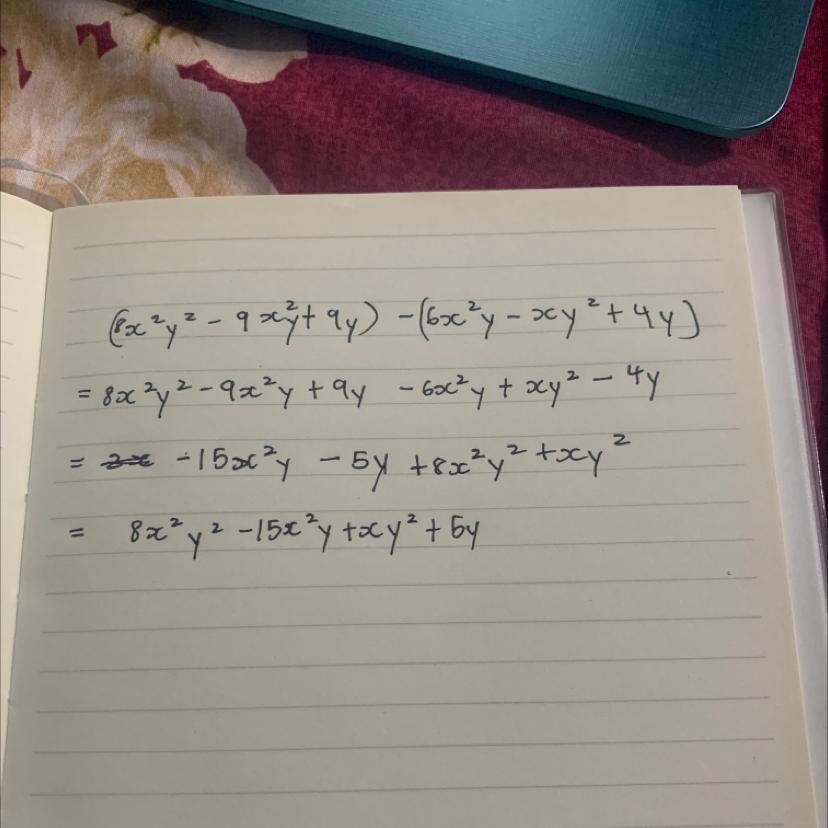 (8x²y² - 9x²y + 9y) - (6x²y - xy² + 4y)
= 8x²y² - 9x²y + 9y - 6x²y + xy² - 4y
= -15x²y - 5y + 8x²y² + xy²
= 8x²y² - 15x²y + xy² + 5y